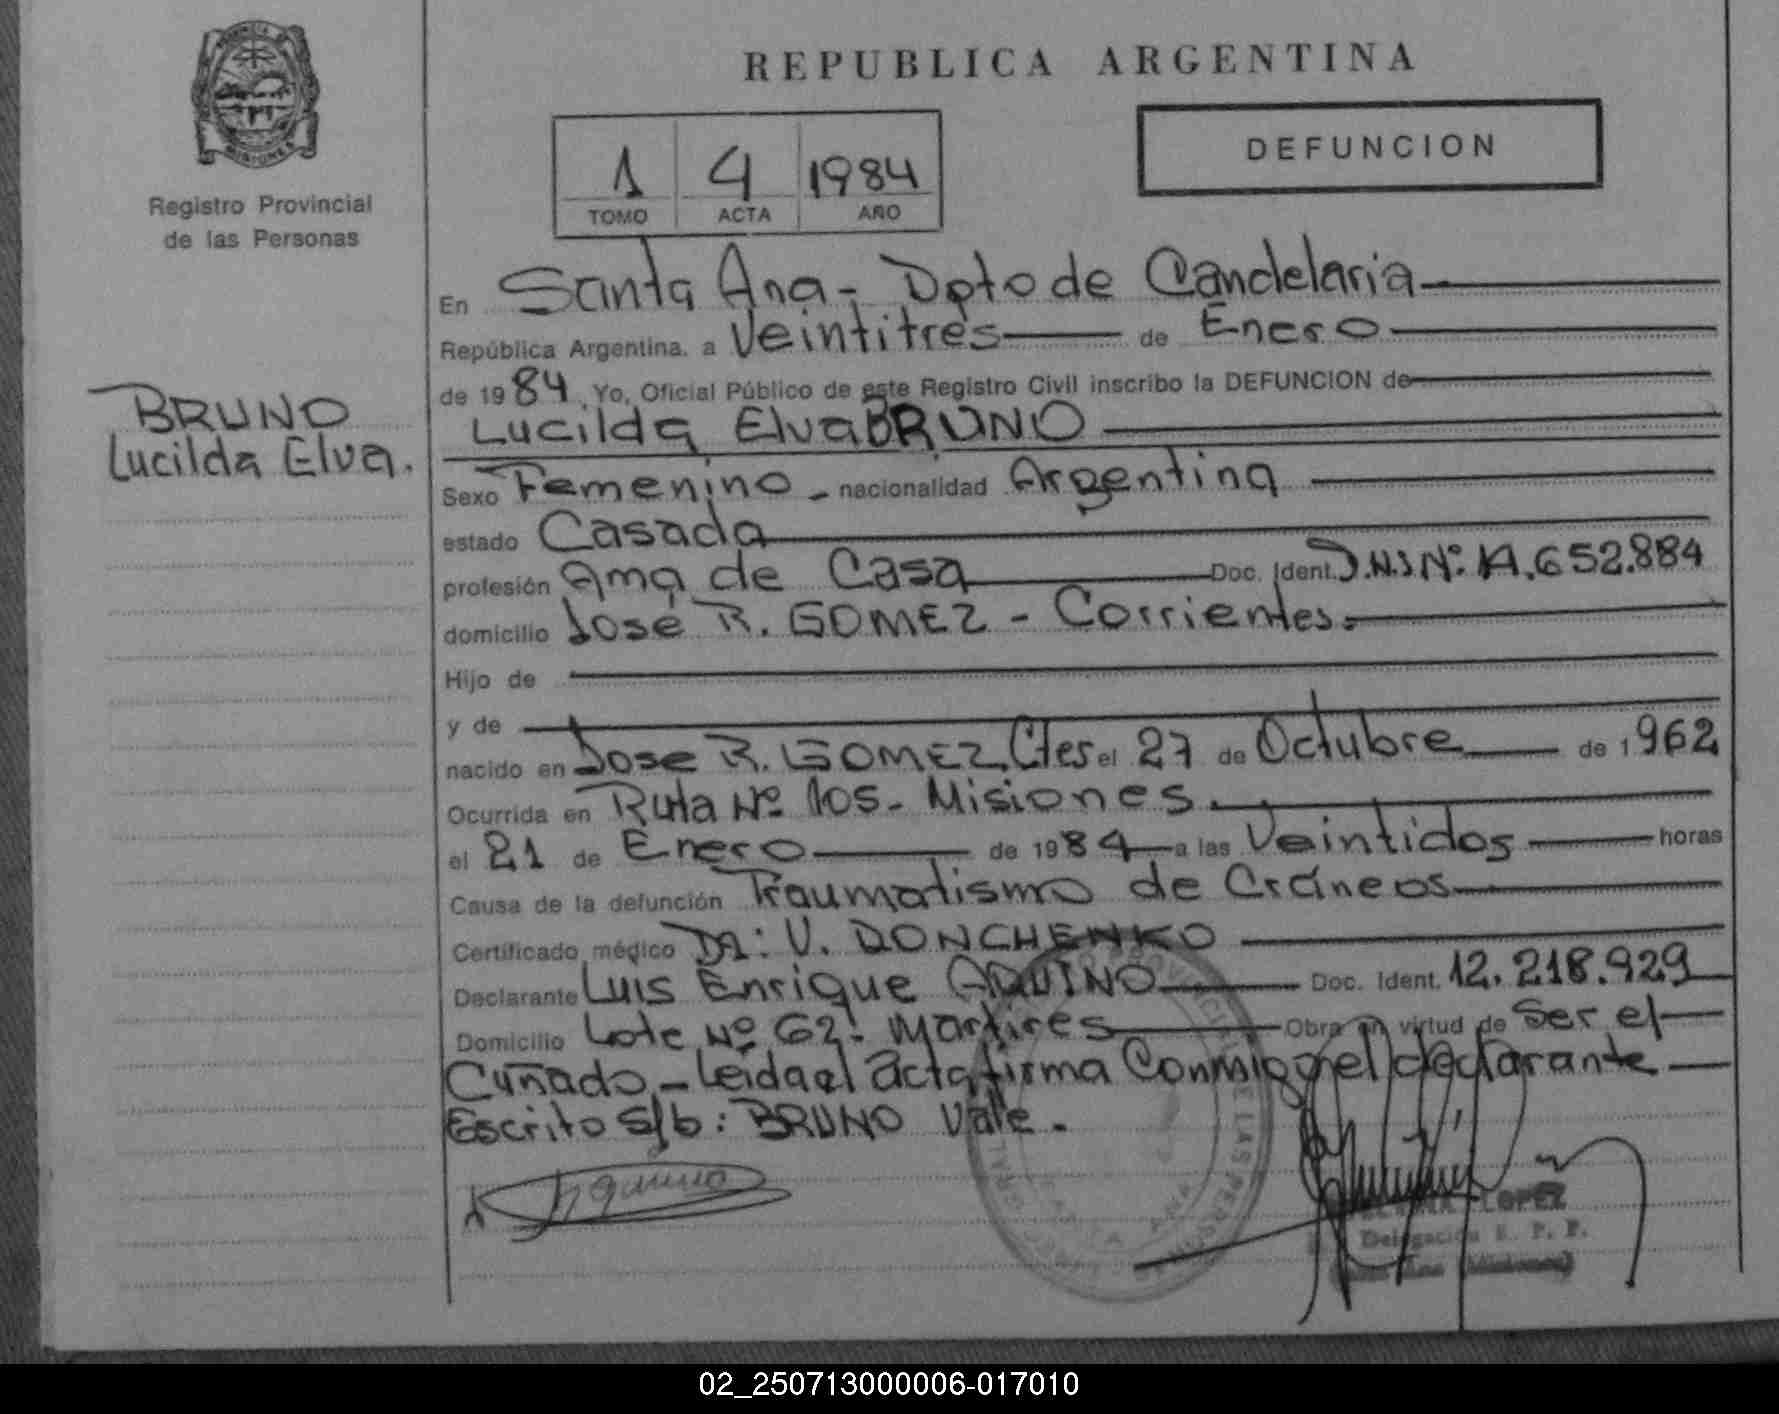 REPUBLICA ARGENTINA
DEFUNCION
1 4 1984
TOMO ACTA AÑO
Registro Provincial
de las Personas
BRUNO
Lucilda Elva.
En Santa Ana - Dpto de Candelaria
República Argentina, a Veintitrés de Enero
de 1984. Yo, Oficial Público de este Registro Civil inscribo la DEFUNCION de
Lucilda Elva BRUNO
Sexo Femenino - nacionalidad Argentina
estado Casada
profesión Ama de Casa Doc. Ident. D.N.I Nº: 14.652.884
domicilio José R. GOMEZ - Corrientes.
Hijo de
y de
nacido en Jose R. GOMEZ Ctes el 27 de Octubre de 1962
Ocurrida en Ruta Nº 105 - Misiones.
el 21 de Enero de 1984 a las Veintidos horas
Causa de la defunción Traumatismo de Cráneos
Certificado médico Dr: V. DONCHENKO
Declarante Luis Enrique AQUINO Doc. Ident. 12.218.929
Domicilio Lote Nº 62: Martires Obra en virtud de Ser el
Cuñado - Leida el acta firma Conmigo el declarante
Escrito S/b: BRUNO Vale.
Aquino
LOPEZ
Delegación R. P. P.
(Misiones)
02_250713000006-017010